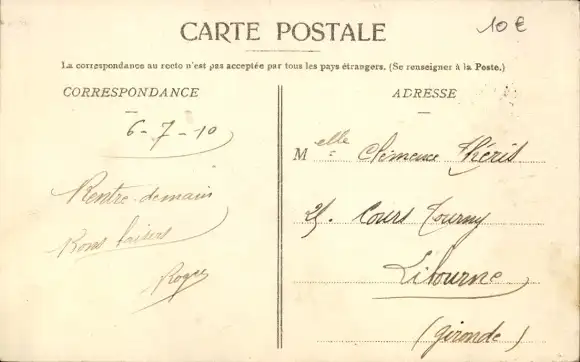 10€
CARTE POSTALE
La correspondance au recto n'est pas acceptée par tous les pays étrangers. (Se renseigner à la Poste.)
CORRESPONDANCE
6-7-10
Rentre demain
Bons baisers
Roger
ADRESSE
Melle Clémence Théris
25. Cours Tourny
Libourne
(Gironde)